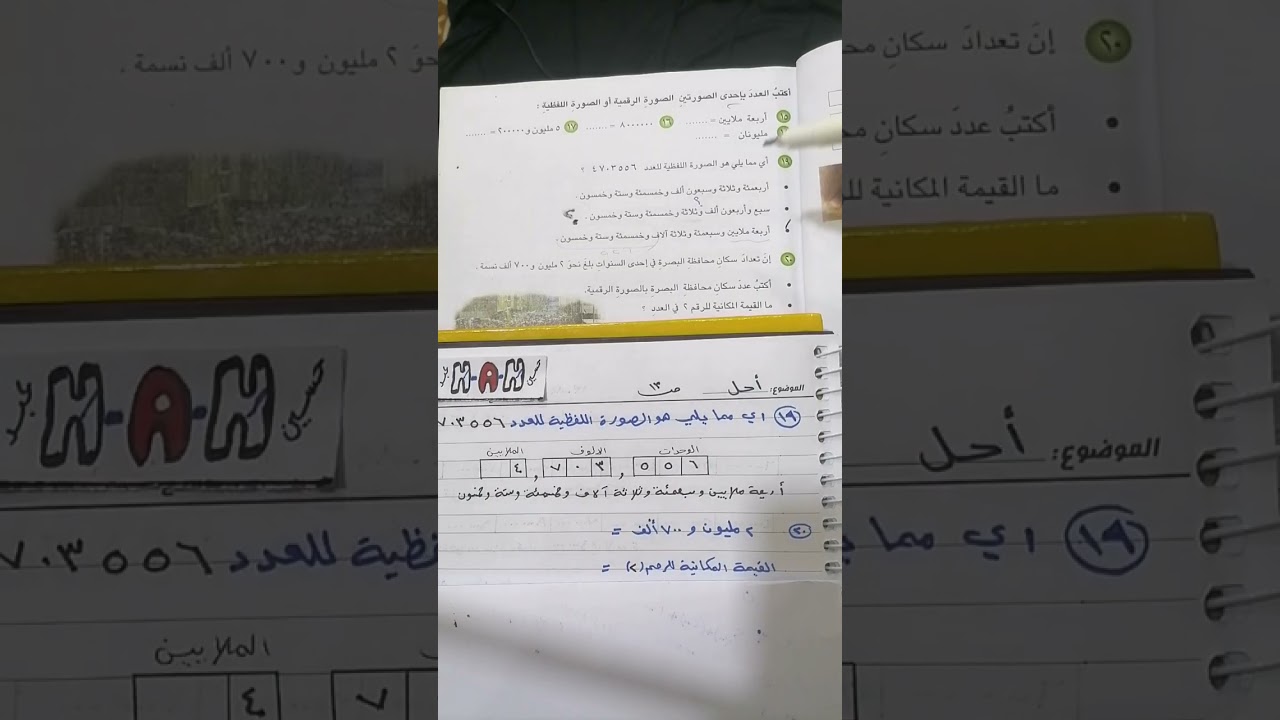 أكتبُ العددَ بإحدى الصورتينِ الصورةِ الرقميةِ أو الصورةِ اللفظيةِ :
١٥ أربعة ملايين = ....... ١٦ ٨٠٠٠٠٠٠ = ....... ١٧ ٥ مليون و ٢٠٠٠٠٠ = .......
مليونان = .......
١٩ أي مما يلي هو الصورة اللفظية للعدد ٤٧٠٣٥٥٦ ؟
• أربعمئة وثلاثة وسبعون ألف وخمسمئة وستة وخمسون .
• سبع وأربعون ألف وثلاثة وخمسمئة وستة وخمسون .
أربعة ملايين وسبعمئة وثلاثة آلاف وخمسمئة وستة وخمسون .
٢٠ إنَ تعدادَ سكانِ محافظة البصرة في إحدى السنوات بلغ نحوَ ٢ مليون و ٧٠٠ ألف نسمة .
• أكتبُ عددَ سكانِ محافظةِ البصرةِ بالصورةِ الرقميةِ.
• ما القيمة المكانية للرقم ٢ في العددِ ؟
حسين H-A-H عبد
الموضوع: أحل ص ١٣
١٩ اي مما يلي هو الصورة اللفظية للعدد ٧٠٣٥٥٦
الوحدات الالوف الملايين
٥ ٥ ٦ , ٧ ٠ ٣ , ٤
أربعة ملايين وسبعمئة وثلاثة آلاف وخمسمئة وستة وخمسون
٢٠ ٢ مليون و ٧٠٠ ألف =
القيمة المكانية للرقم (٢) =